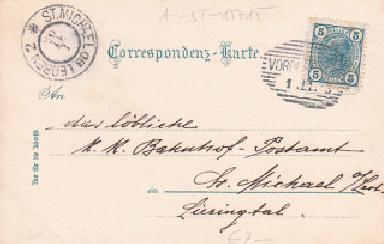 A-ST-15715
ST. MICHAEL OB LEOBEN 2
Correspondenz-Karte.
5 5
5 5
VORD
An
das löbliche
K. K. Bahnhof-Postamt
in St. Michael
Liesingtal.
Nur für die Adresse